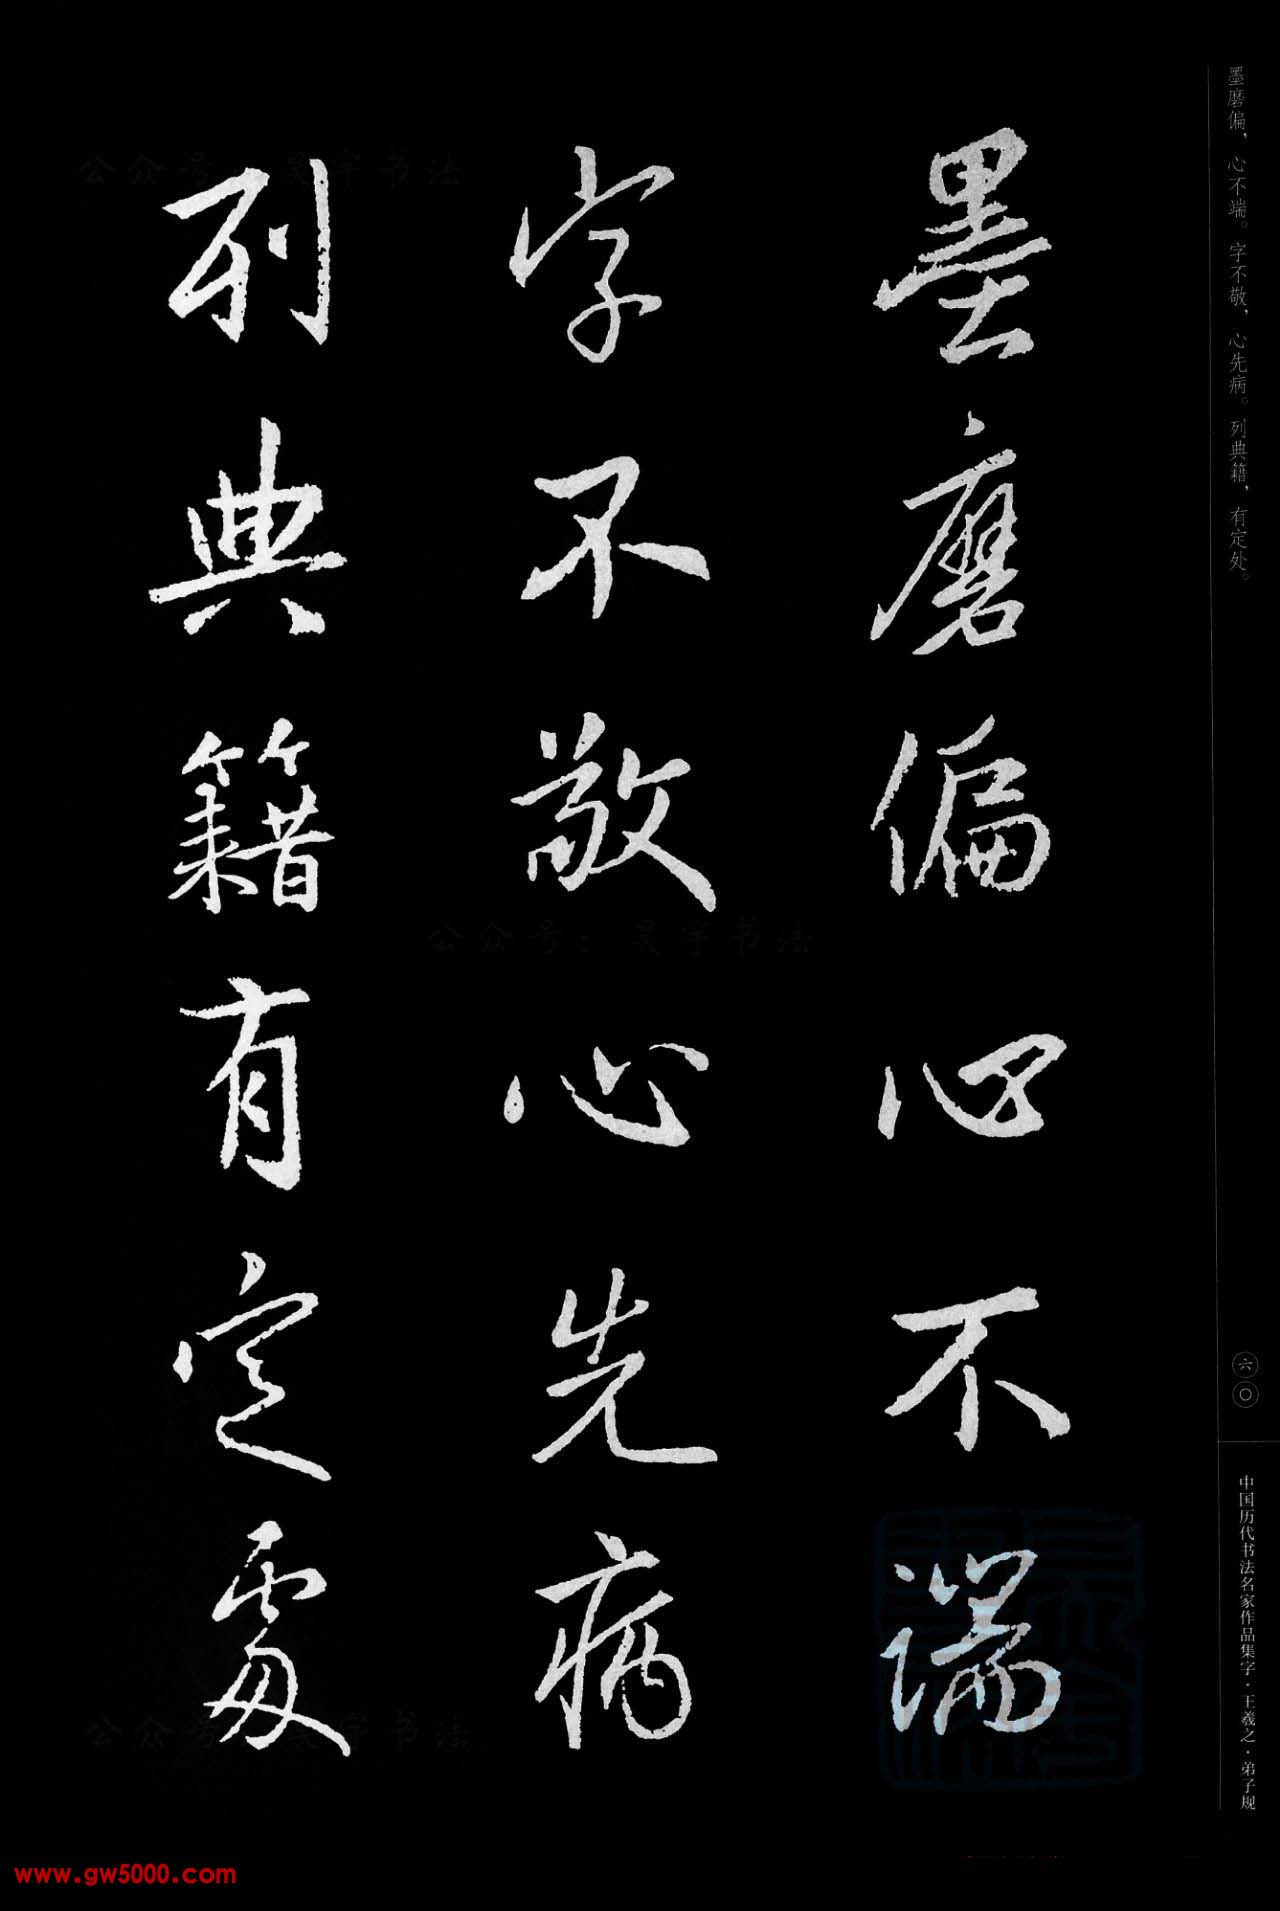 墨磨偏，心不端。字不敬，心先病。列典籍，有定处。
墨磨偏心不端
字不敬心先病
列典籍有定處
六〇
中国历代书法名家作品集字·王羲之·弟子规
公众号：吴宇书法
公众号：吴宇书法
公众号：吴宇书法
www.gw5000.com